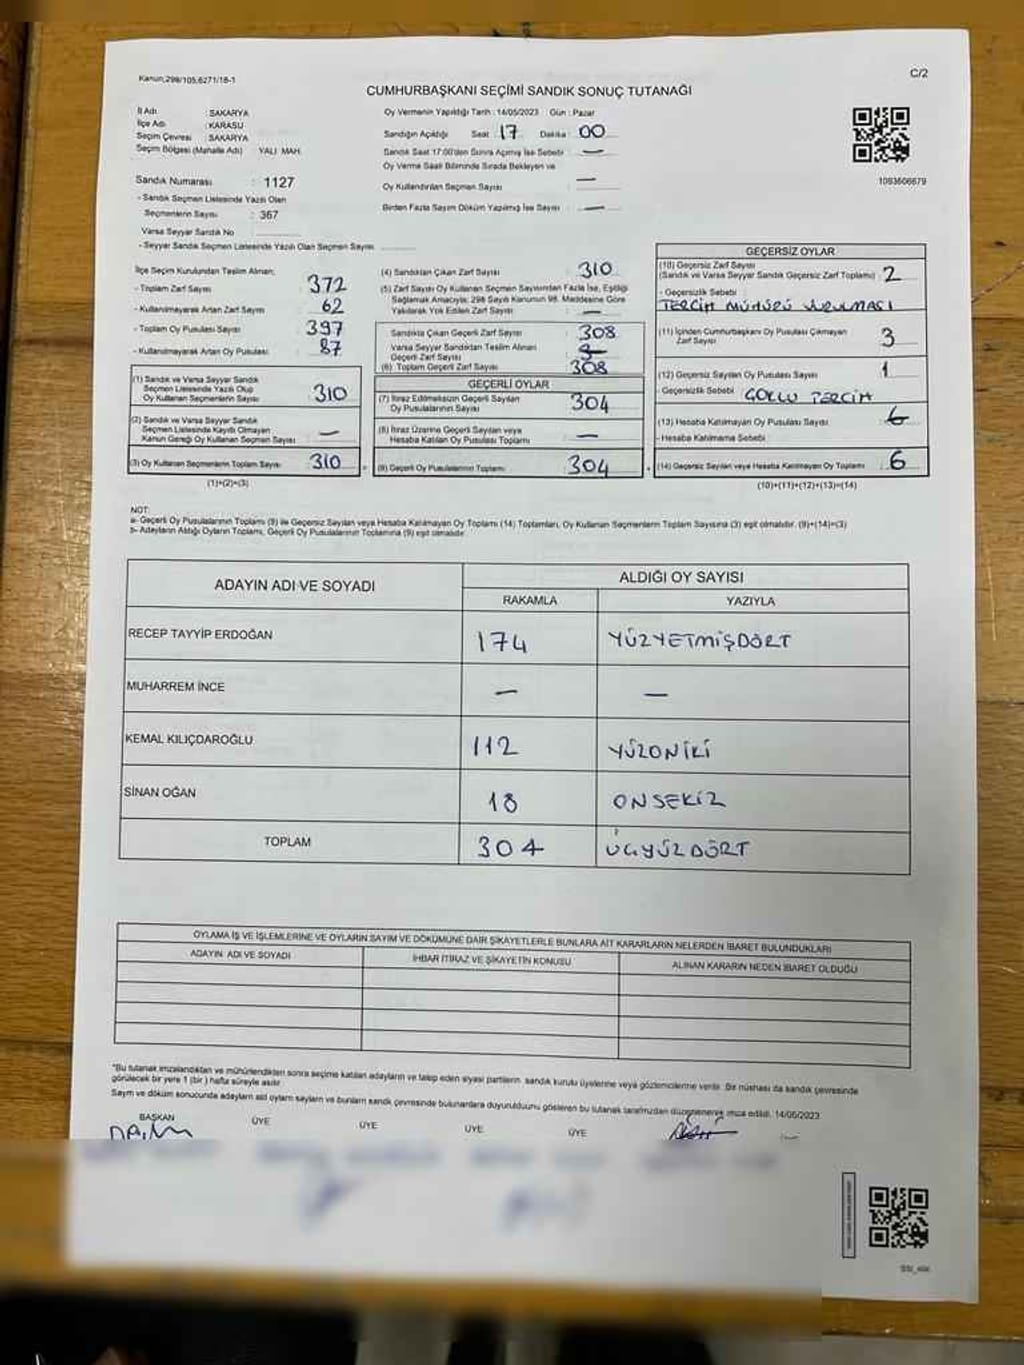 Kanun,298/105,6271/18-1
C/2
CUMHURBAŞKANI SEÇİMİ SANDIK SONUÇ TUTANAĞI
İl Adı : SAKARYA
İlçe Adı : KARASU
Seçim Çevresi : SAKARYA
Seçim Bölgesi (Mahalle Adı) YALI MAH.
Oy Vermenin Yapıldığı Tarih : 14/05/2023 Gün : Pazar
Sandığın Açıldığı Saat : 17 Dakika : 00
Sandık Saat 17:00'den Sonra Açılmış İse Sebebi : —
Oy Verme Saati Bitiminde Sırada Bekleyen ve
Oy Kullandırılan Seçmen Sayısı : —
Birden Fazla Sayım Döküm Yapılmış İse Sayısı : —
1093606679
Sandık Numarası : 1127
- Sandık Seçmen Listesinde Yazılı Olan
Seçmenlerin Sayısı : 367
Varsa Seyyar Sandık No
- Seyyar Sandık Seçmen Listesinde Yazılı Olan Seçmen Sayısı
İlçe Seçim Kurulundan Teslim Alınan;
- Toplam Zarf Sayısı 372
- Kullanılmayarak Artan Zarf Sayısı 62
- Toplam Oy Pusulası Sayısı 397
- Kullanılmayarak Artan Oy Pusulası 87
(1) Sandık ve Varsa Seyyar Sandık
Seçmen Listesinde Yazılı Olup
Oy Kullanan Seçmenlerin Sayısı 310
(2) Sandık ve Varsa Seyyar Sandık
Seçmen Listesinde Kaydı Olmayan
Kanun Gereği Oy Kullanan Seçmen Sayısı —
(3) Oy Kullanan Seçmenlerin Toplam Sayısı 310
(1)+(2)=(3)
(4) Sandıktan Çıkan Zarf Sayısı 310
(5) Zarf Sayısı Oy Kullanan Seçmen Sayısından Fazla İse, Eşitliği
Sağlamak Amacıyla; 298 Sayılı Kanunun 98. Maddesine Göre
Yakılarak Yok Edilen Zarf Sayısı : —
Sandıkta Çıkan Geçerli Zarf Sayısı 308
Varsa Seyyar Sandıktan Teslim Alınan
Geçerli Zarf Sayısı
(6) Toplam Geçerli Zarf Sayısı 308
GEÇERLİ OYLAR
(7) İtiraz Edilmeksizin Geçerli Sayılan
Oy Pusulalarının Sayısı 304
(8) İtiraz Üzerine Geçerli Sayılan veya
Hesaba Katılan Oy Pusulası Toplamı —
(9) Geçerli Oy Pusulalarının Toplamı 304
GEÇERSİZ OYLAR
(10) Geçersiz Zarf Sayısı
(Sandık ve Varsa Seyyar Sandık Geçersiz Zarf Toplamı) 2
- Geçersizlik Sebebi :
TERCİH MÜHÜRÜ VURULMASI
(11) İçinden Cumhurbaşkanı Oy Pusulası Çıkmayan
Zarf Sayısı 3
(12) Geçersiz Sayılan Oy Pusulası Sayısı 1
- Geçersizlik Sebebi ÇOKLU TERCİH
(13) Hesaba Katılmayan Oy Pusulası Sayısı
- Hesaba Katılmama Sebebi
(14) Geçersiz Sayılan veya Hesaba Katılmayan Oy Toplamı : 6
(10)+(11)+(12)+(13)=(14)
NOT:
a- Geçerli Oy Pusulalarının Toplamı (9) ile Geçersiz Sayılan veya Hesaba Katılmayan Oy Toplamı (14) Toplamları, Oy Kullanan Seçmenlerin Toplam Sayısına (3) eşit olmalıdır. (9)+(14)=(3)
b- Adayların Aldığı Oyların Toplamı, Geçerli Oy Pusulalarının Toplamına (9) eşit olmalıdır.
ADAYIN ADI VE SOYADI
ALDIĞI OY SAYISI
RAKAMLA YAZIYLA
RECEP TAYYİP ERDOĞAN 174 YÜZYETMİŞDÖRT
MUHARREM İNCE — —
KEMAL KILIÇDAROĞLU 112 YÜZONİKİ
SİNAN OĞAN 18 ONSEKİZ
TOPLAM 304 ÜÇYÜZDÖRT
OYLAMA İŞ VE İŞLEMLERİNE VE OYLARIN SAYIM VE DÖKÜMÜNE DAİR ŞİKAYETLERLE BUNLARA AİT KARARLARIN NELERDEN İBARET BULUNDUKLARI
ADAYIN ADI VE SOYADI İHBAR İTİRAZ VE ŞİKAYETİN KONUSU ALINAN KARARIN NEDEN İBARET OLDUĞU
"Bu tutanak imzalandıktan ve mühürlendikten sonra seçime katılan adayların ve talep eden siyasi partilerin sandık kurulu üyelerine veya gözlemcilerine verilir. Bir nüshası da sandık çevresinde
görülecek bir yere 1 (bir) hafta süreyle asılır.
Sayım ve döküm sonucunda adayların aldı oyların sayılarını ve bunların sandık çevresinde bulunanlara duyurulduunu gösteren bu tutanak tarafımızdan düzenlenerek imza edildi. 14/05/2023
BAŞKAN ÜYE ÜYE ÜYE ÜYE